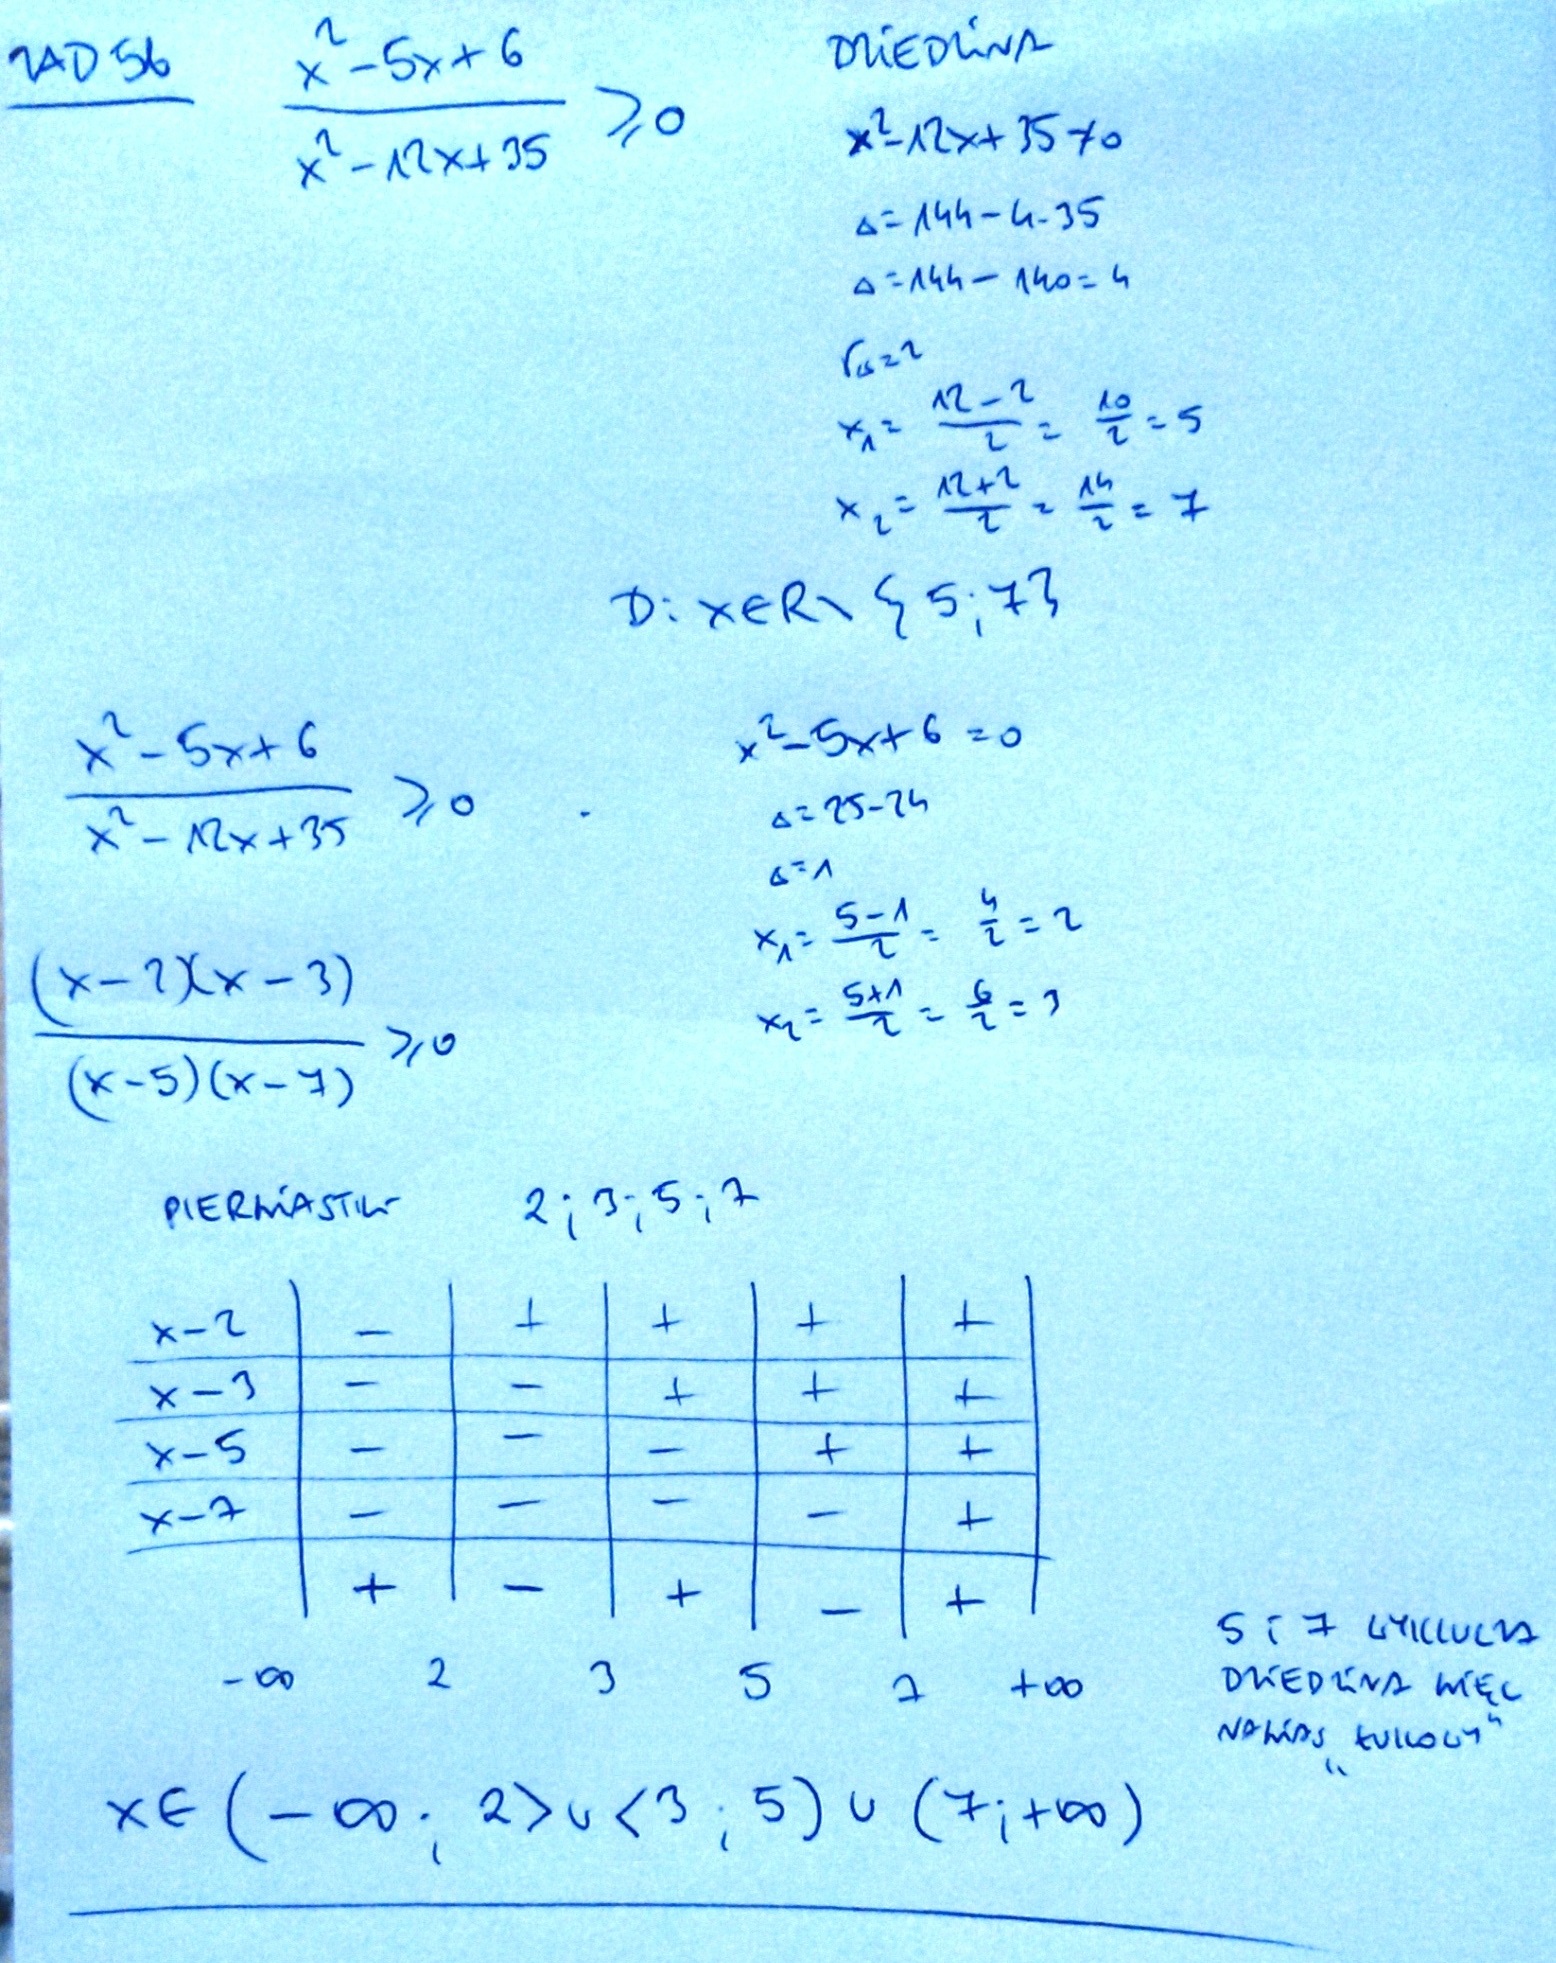 ZAD 56
x²-5x+6
───────── ⩾0
x²-12x+35
DZIEDZINA
x²-12x+35≠0
Δ=144-4·35
Δ=144-140=4
√Δ=2
x₁=(12-2)/2=10/2=5
x₂=(12+2)/2=14/2=7
D: x∈R\{5;7}
x²-5x+6
───────── ⩾0
x²-12x+35
x²-5x+6=0
Δ=25-24
Δ=1
x₁=(5-1)/2=4/2=2
x₂=(5+1)/2=6/2=3
(x-2)(x-3)
───────── ⩾0
(x-5)(x-7)
PIERWIASTKI 2;3;5;7
x-2 | - | + | + | + | + |
x-3 | - | - | + | + | + |
x-5 | - | - | - | + | + |
x-7 | - | - | - | - | + |
| + | - | + | - | + |
-∞ 2 3 5 7 +∞
5 i 7 WYKLUCZA
DZIEDZINA WIĘC
NAWIAS „ŁUKOWY"
x∈(-∞; 2>∪<3;5)∪(7;+∞)